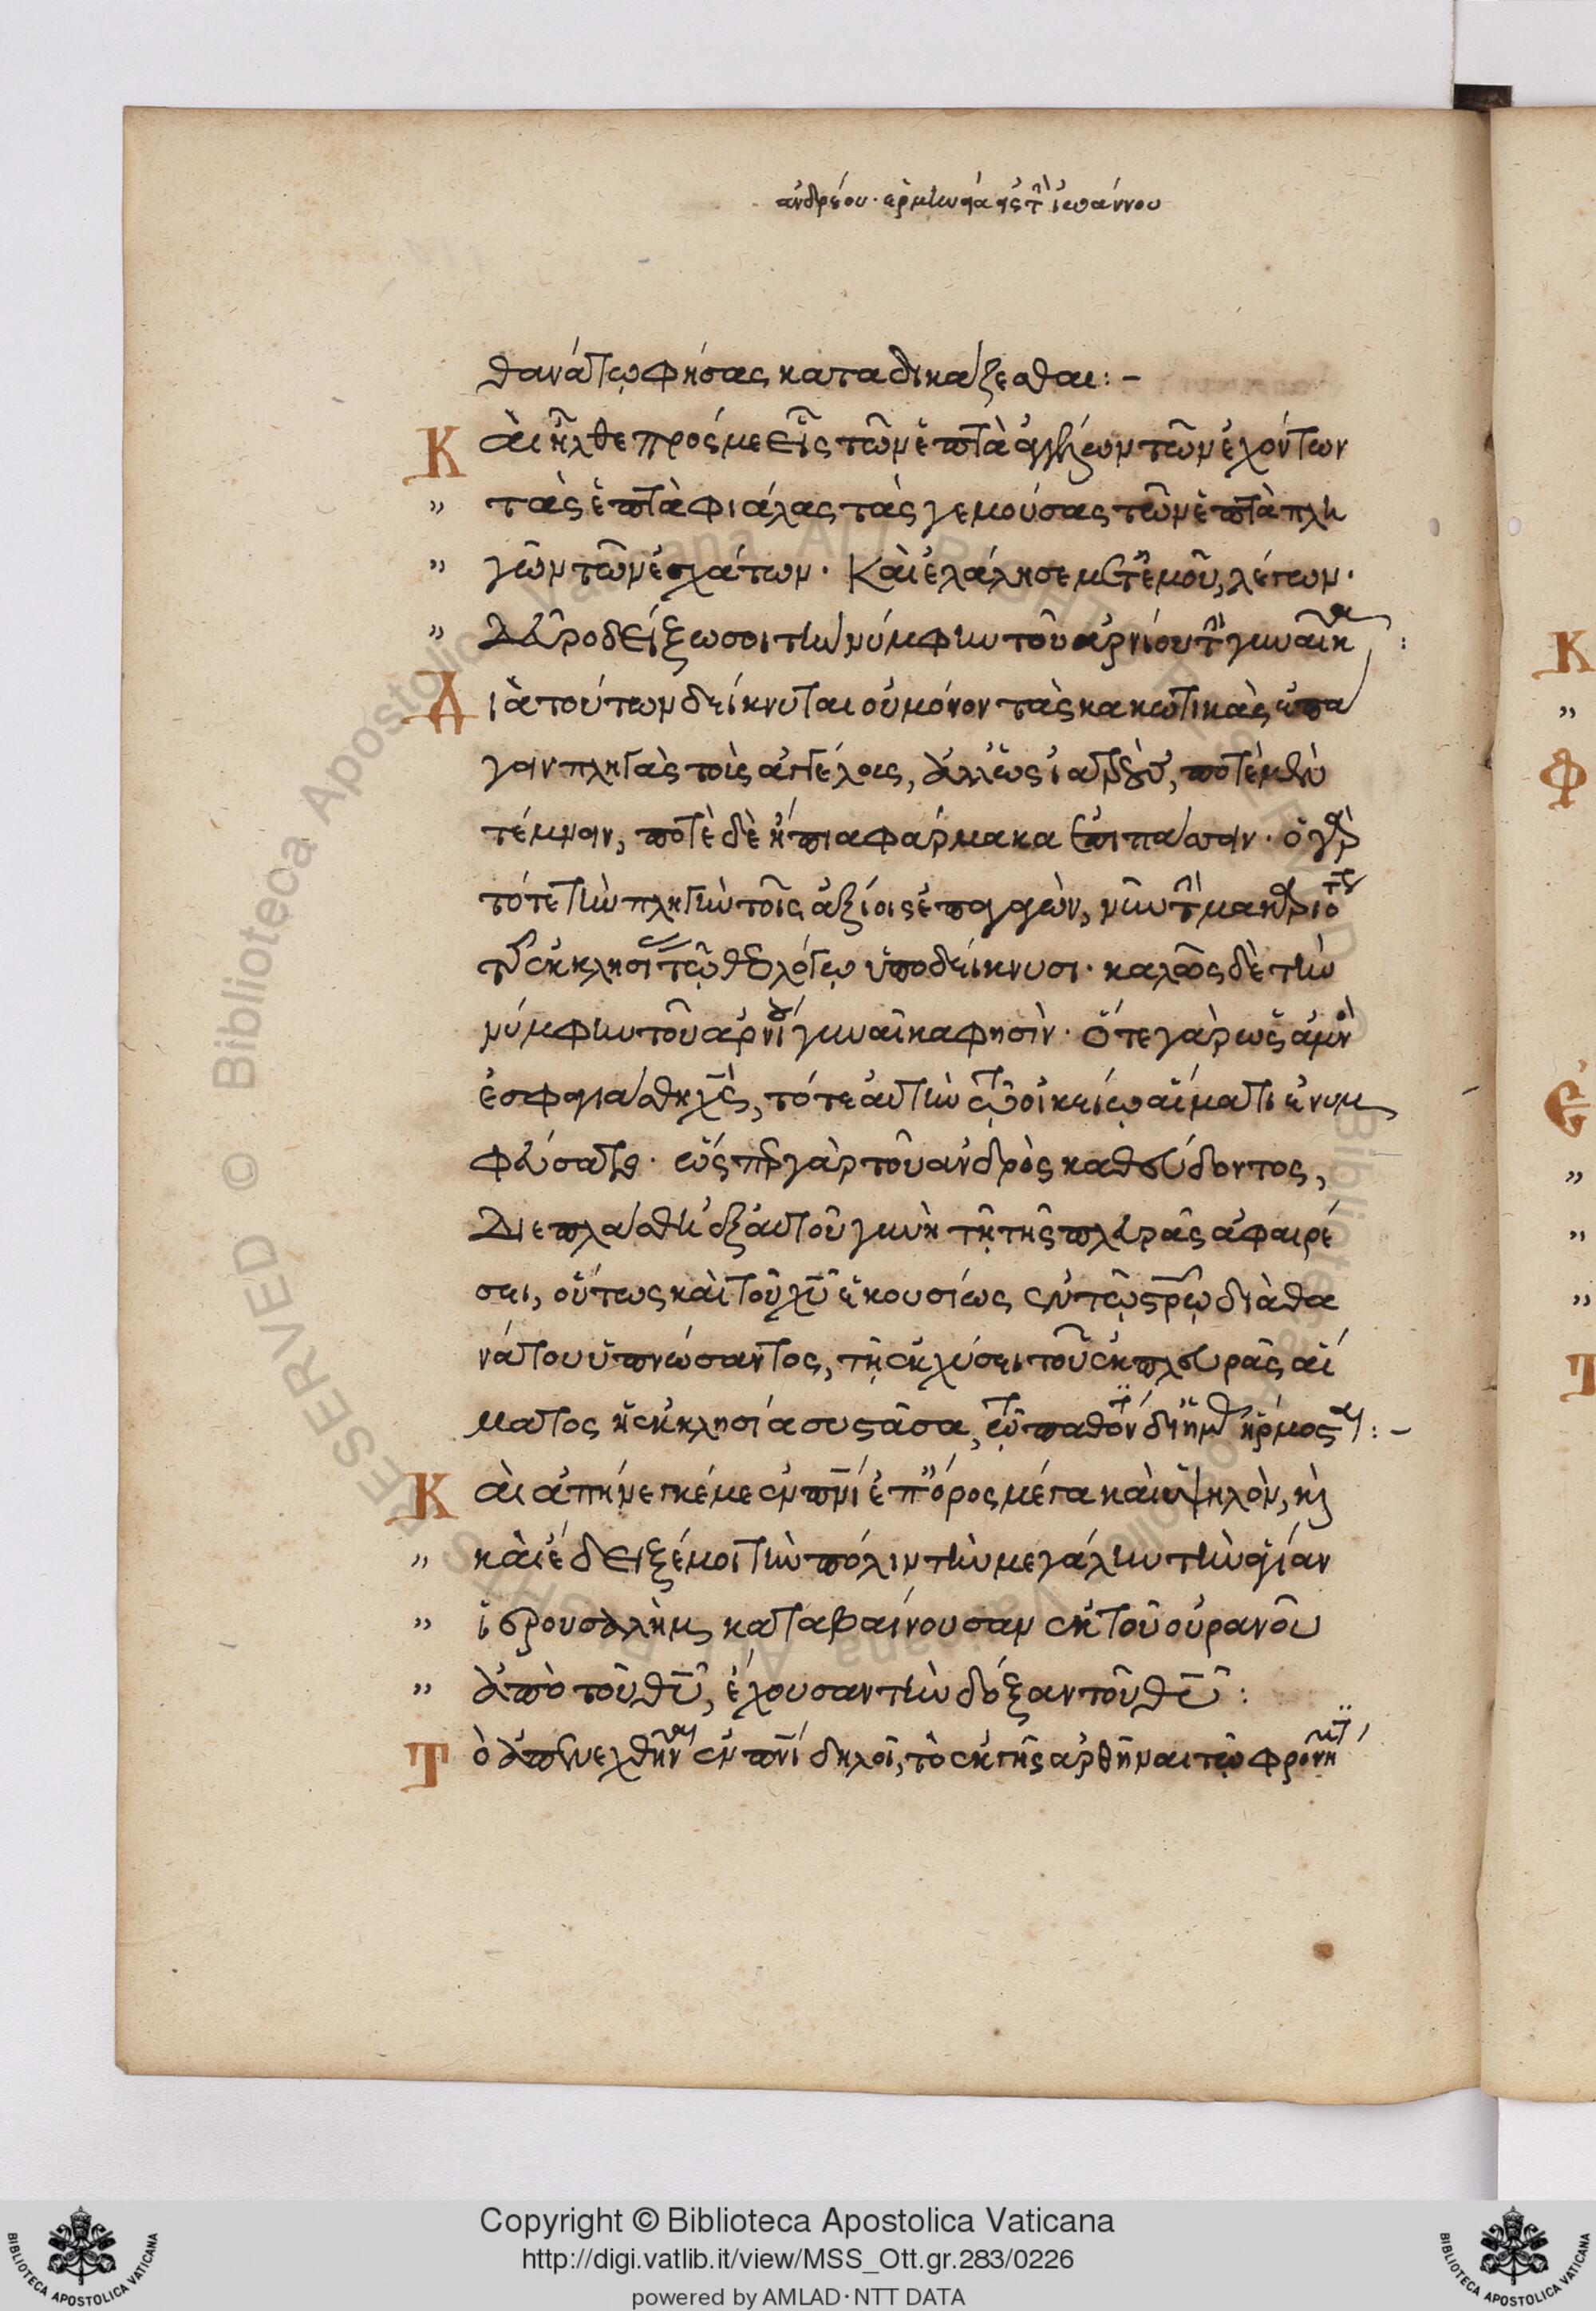 ἀνδρέου · ἑρμηνεία εἰς τ ἰωάννου
θανάτῳ φήσας καταδικάζεσθαι : –
Καὶ ἦλθε πρός με εἷς τῶν ἑπτὰ ἀγγέλων τῶν ἐχόντων
" τὰς ἑπτὰ φιάλας τὰς γεμούσας τῶν ἑπτὰ πλη
" γῶν τῶν ἐσχάτων · Καὶ ἐλάλησε μετ ἐμοῦ, λέγων ·
" Δεῦρο δείξω σοι τὴν νύμφην τοῦ ἀρνίου τ γυναῖκα :
Διὰ τούτων δείκνυται οὐ μόνον τὰς κακωτικὰς ἐπά
γειν πληγὰς τοῖς ἀγγέλοις, ἀλλ ὡς ἰατροὺς, ποτὲ μὲν
τέμνειν, ποτὲ δὲ ἤπια φάρμακα ἐπιπάσσειν · ὁ γὰρ
τότε τὴν πληγὴν τοῖς ἀξίοις ἐπαγαγὼν, νῦν τ μακαριότητα
τῆς ἐκκλησίας τῷ θεολόγῳ ὑποδείκνυσι · καλῶς δὲ τὴν
νύμφην τοῦ ἀρνίου γυναῖκα φησὶν · Ὅτε γὰρ ὡς ἀμνὸς
ἐσφαγιάσθη χς, τότε αὐτὴν τῷ οἰκείῳ αἵματι ἐνυμ
φεύσατο · ὥς περ γὰρ τοῦ ἀνδρὸς καθεύδοντος,
Διεπλάσθη ἐξ αὐτοῦ γυνὴ τῇ τῆς πλευρᾶς ἀφαιρέ
σει, οὕτως καὶ τοῦ χυ ἑκουσίως ἐν τῷ σρῷ διὰ θα
νάτου ὑπνώσαντος, τῇ ἐκχύσει τοῦ ἐκ πλευρᾶς αἵ
ματος ἡ ἐκκλησία συστᾶσα, τῷ παθόντι δι ἡμᾶς ἥρμοσται : –
Καὶ ἀπήνεγκέ με ἐν πνι ἐπ ὄρος μέγα καὶ ὑψηλὸν, καὶ
" καὶ ἔδειξέ μοι τὴν πόλιν τὴν μεγάλην τὴν ἁγίαν
" ἱερουσαλὴμ καταβαίνουσαν ἐκ τοῦ οὐρανοῦ
" ἀπὸ τοῦ θυ, ἔχουσαν τὴν δόξαν τοῦ θυ :
Τὸ ἀπενεχθῆναι ἐν πνι δηλοῖ, τὸ ἐκ γῆς ἀρθῆναι τῷ φρονήματι
Copyright © Biblioteca Apostolica Vaticana
http://digi.vatlib.it/view/MSS_Ott.gr.283/0226
powered by AMLAD · NTT DATA